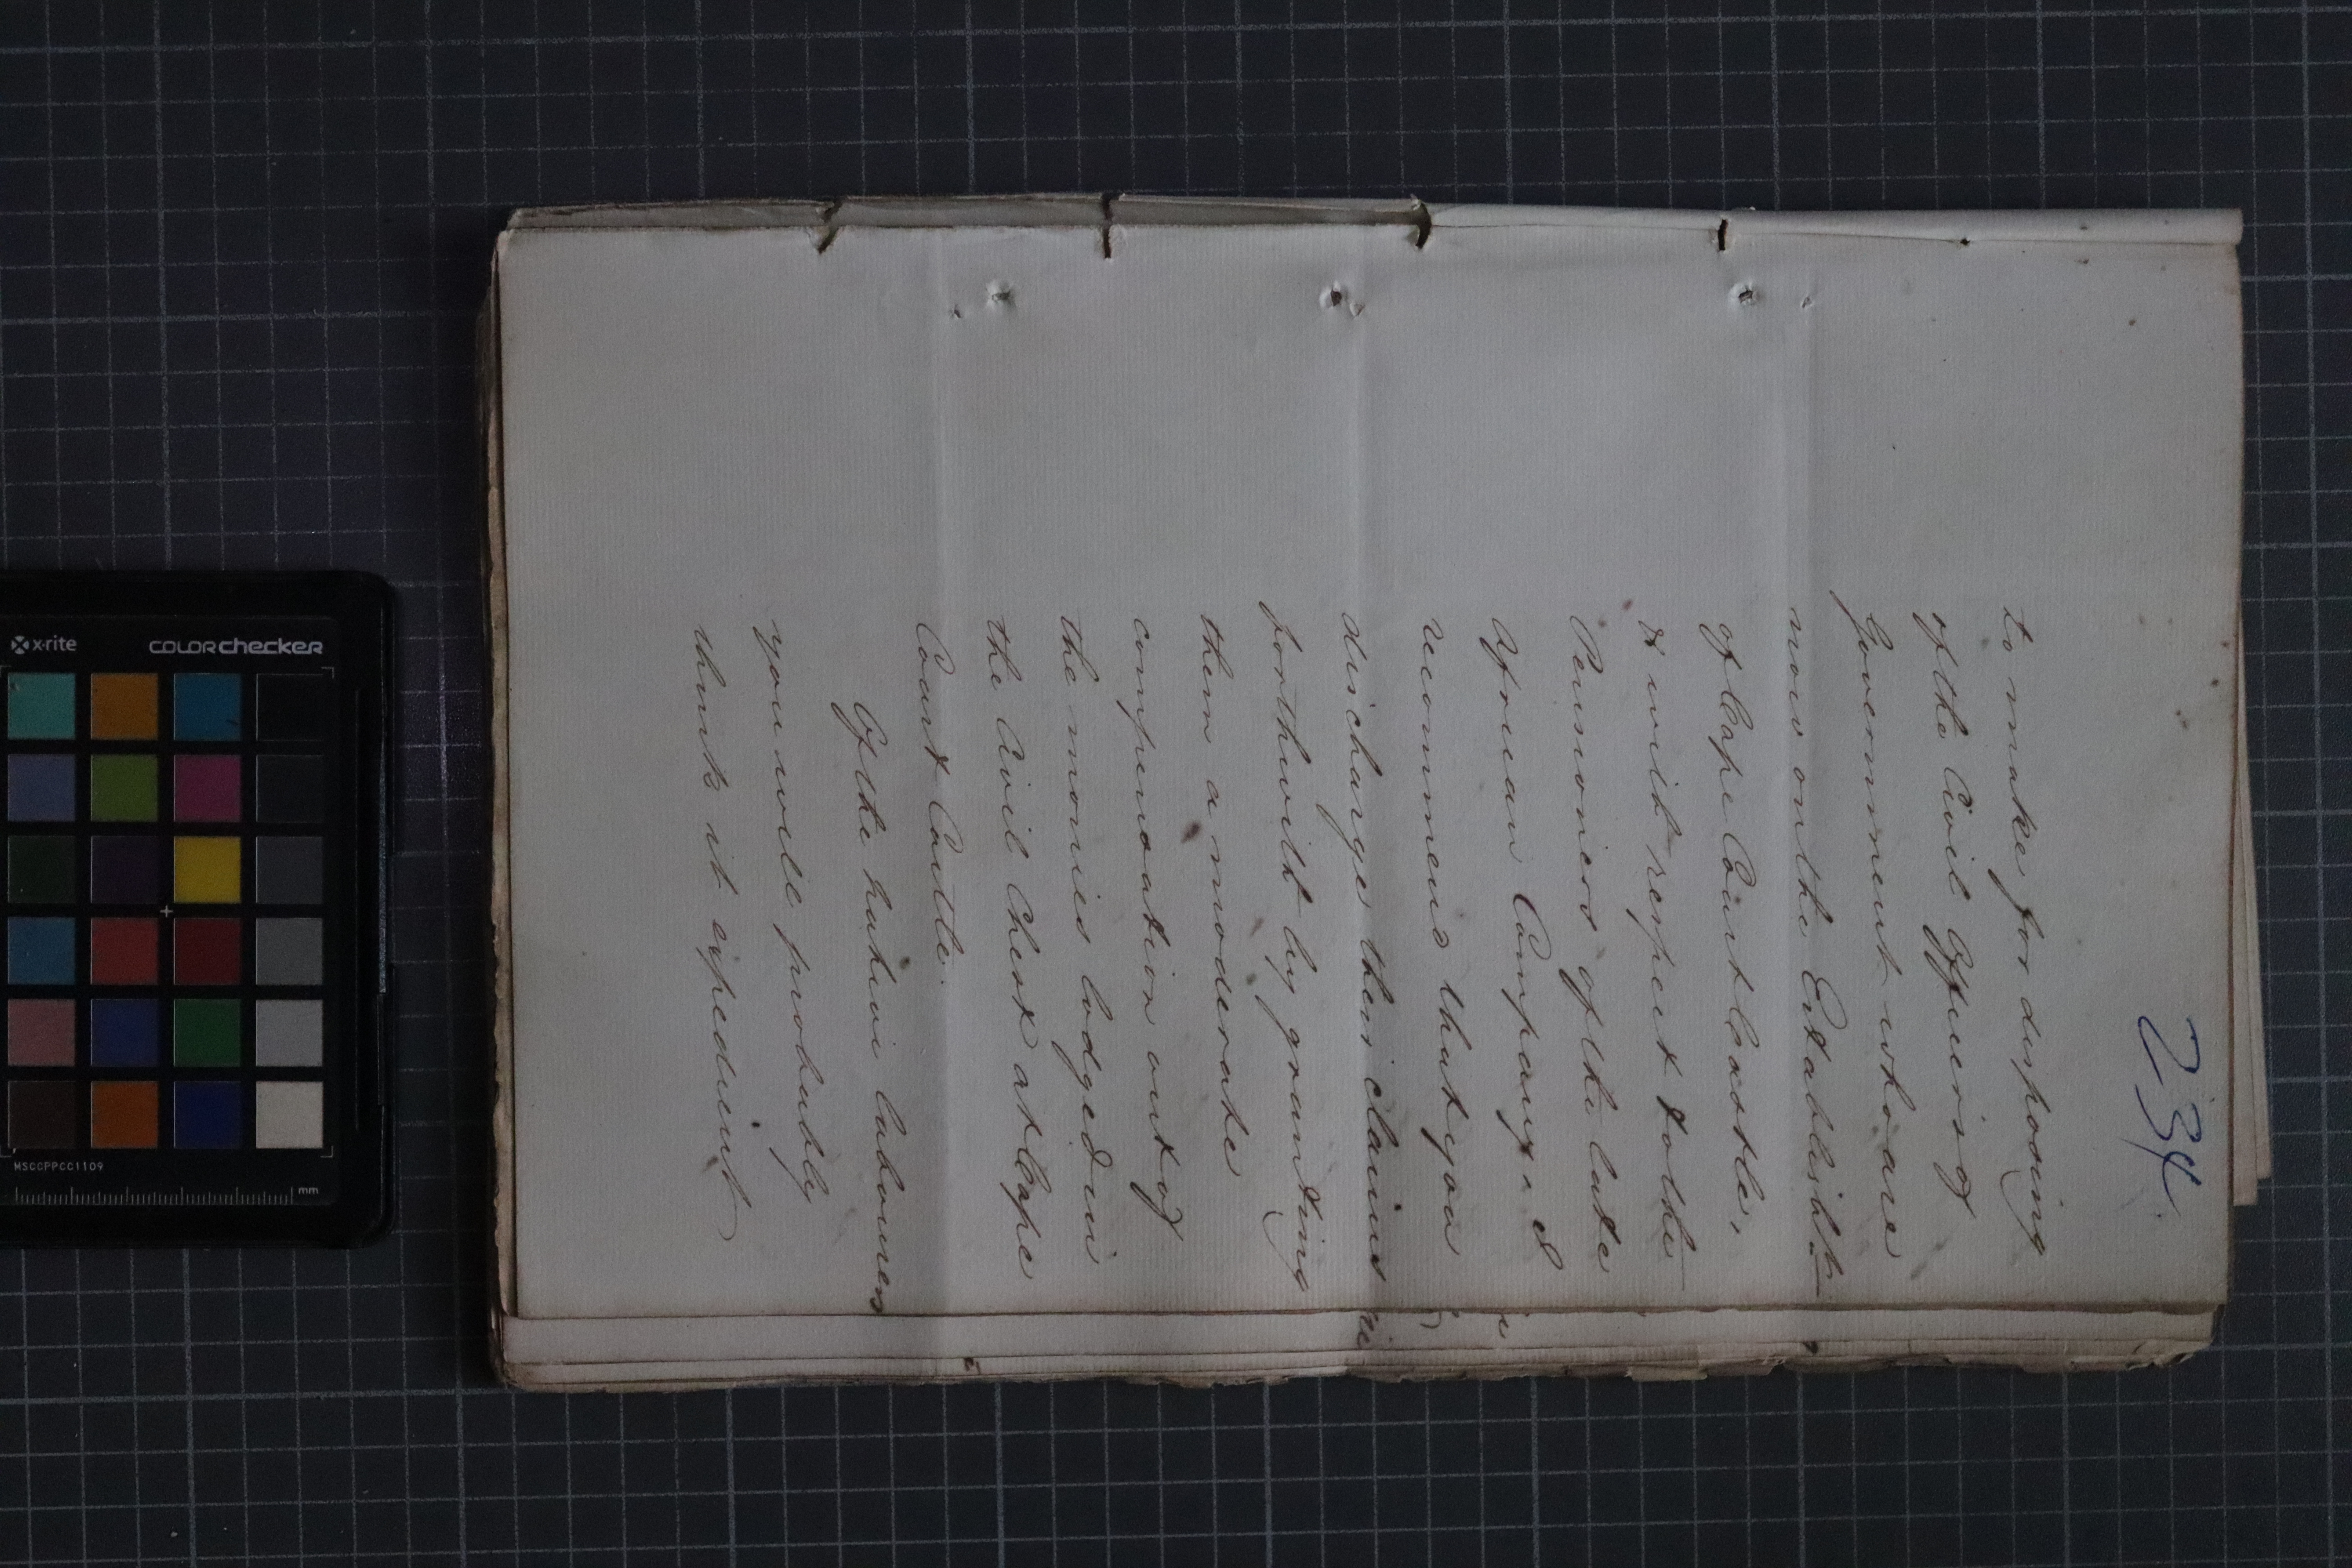 234.
to make for disposing
of the Civil Officers of
Government who are
now on the Establisht
of Cape Coast Castle,
& with respect to the
Pensioners of the late
African Company I
recommend that you
discharge their claims
forthwith by granting
them a moderate
compensation out of
the monies lodged in
the Civil Chest at Cape
Coast Castle.
Of the native labourers
you will probably
think it expedient
x-rite
colorchecker
MSCCPPCC1109
mm